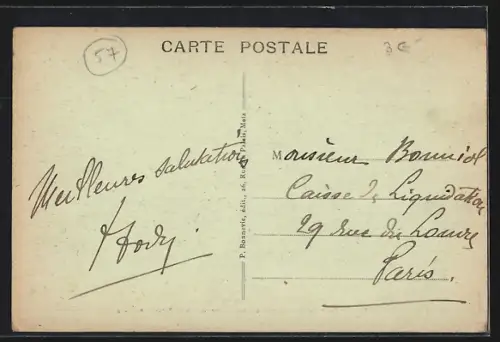 CARTE POSTALE
57
3€
Meilleures salutations
P. Bonnerie, édit., 26, Rue du Palais, Metz
Monsieur Bonniol
Caisse de Liquidation
29 rue du Louvre
Paris.